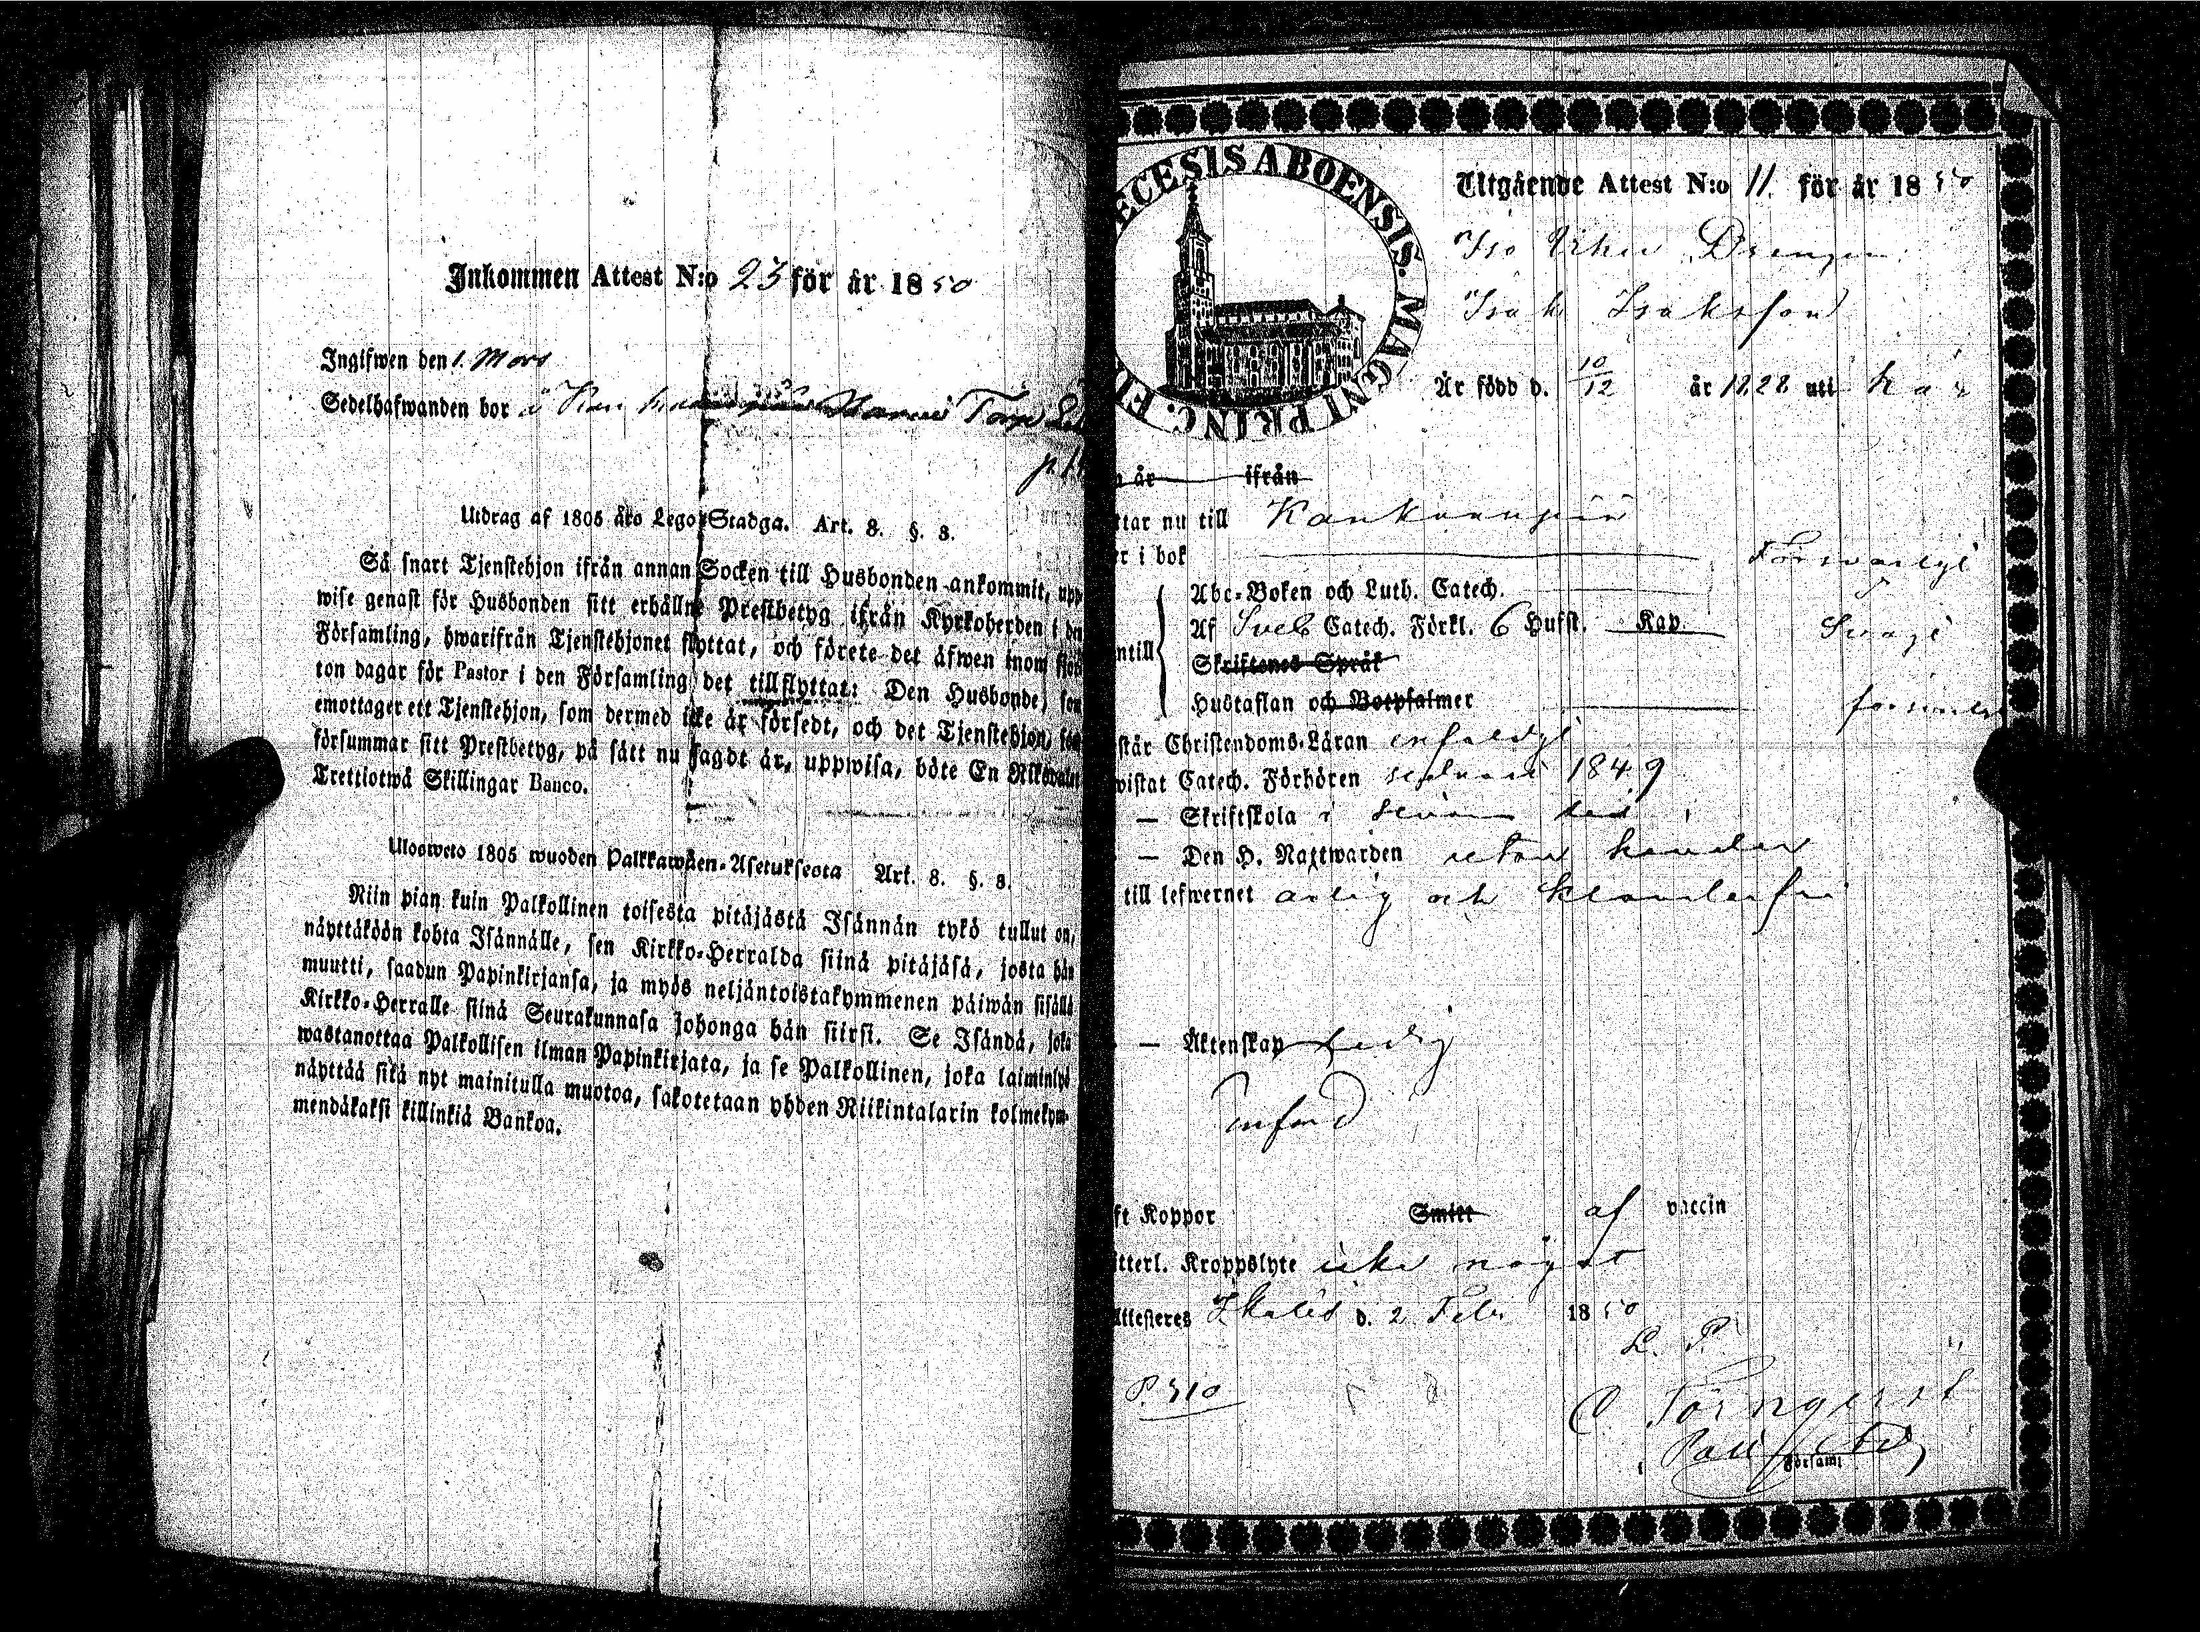 Inkommen Attest N:o 23 för år 1850
Ingifwen den 1. Mars
Sedelhafwanden bor å Torp
Utdrag af 1805 års Lego-Stadga. Art. 8. §. 8.
Så snart Tjenstehjon ifrån annan Socken till Husbonden ankommit, upp
wise genast för Husbonden sitt erhållne Prestbetyg ifrån Kyrkoherden i den
Församling, hwarifrån Tjenstehjonet flyttat, och förete det äfwen inom fjor
ton dagar för Pastor i den Församling det tillflyttat: Den Husbonde, som
emottager ett Tjenstehjon, som dermed icke är försedt, och det Tjenstehjon, som
försummar sitt Prestbetyg, på sätt nu sagdt är, uppwisa, böte En Riksdaler
Trettiotwå Skillingar Banco.
Ulosweto 1805 wuoden Palkkawäen-Asetuksesta Art. 8. §. 8.
Niin pian kuin Palkollinen toisesta pitäjästä Isännän tykö tullut on,
näyttäköön kohta Isännälle, sen Kirkko-Herralda siinä pitäjäsä, josta hän
muutti, saadun Papinkirjansa, ja myös neljäntoistakymmenen päiwän sisällä
Kirkko-Herralle siinä Seurakunnasa johonga hän siirsi. Se Isändä, joka
wastanottaa Palkollisen ilman Papinkirjata, ja se Palkollinen, joka laiminlyö
näyttää sitä nyt mainitulla muotoa, sakotetaan yhden Riikintalarin kolmekym-
mendäkaksi killinkiä Bankoa.
ECESIS ABOENSIS. MAGNI PRINC. FI
Utgående Attest N:o 11. för år 1850
Iso Drengen
Isak Isaksson
Är född d. 10/12 år 1828 uti
n år ifrån
ttar nu till Kankaanpää
er i bok Försvarligt
Abc-Boken och Luth. Catech.
Af Sveb Catech. Förkl. 6 Hufst. Kap. Svagt
ntill
Skriftenes Språk
Hustaflan och Botpsalmer
står Christendoms-Läran enfaldigt
wistat Catech. Förhören sednare 1849
— Skriftskola i
— Den H. Nattwarden utan hinder
till lefwernet ärlig och klanderfri
— Äktenskap ledig
ft Koppor Smitt af vaccin
itterl. Kroppslyte icke något
Attesteres Ikalis d. 2 Febr 1850
L. P.
P. 310
C Törnqvist
Församl